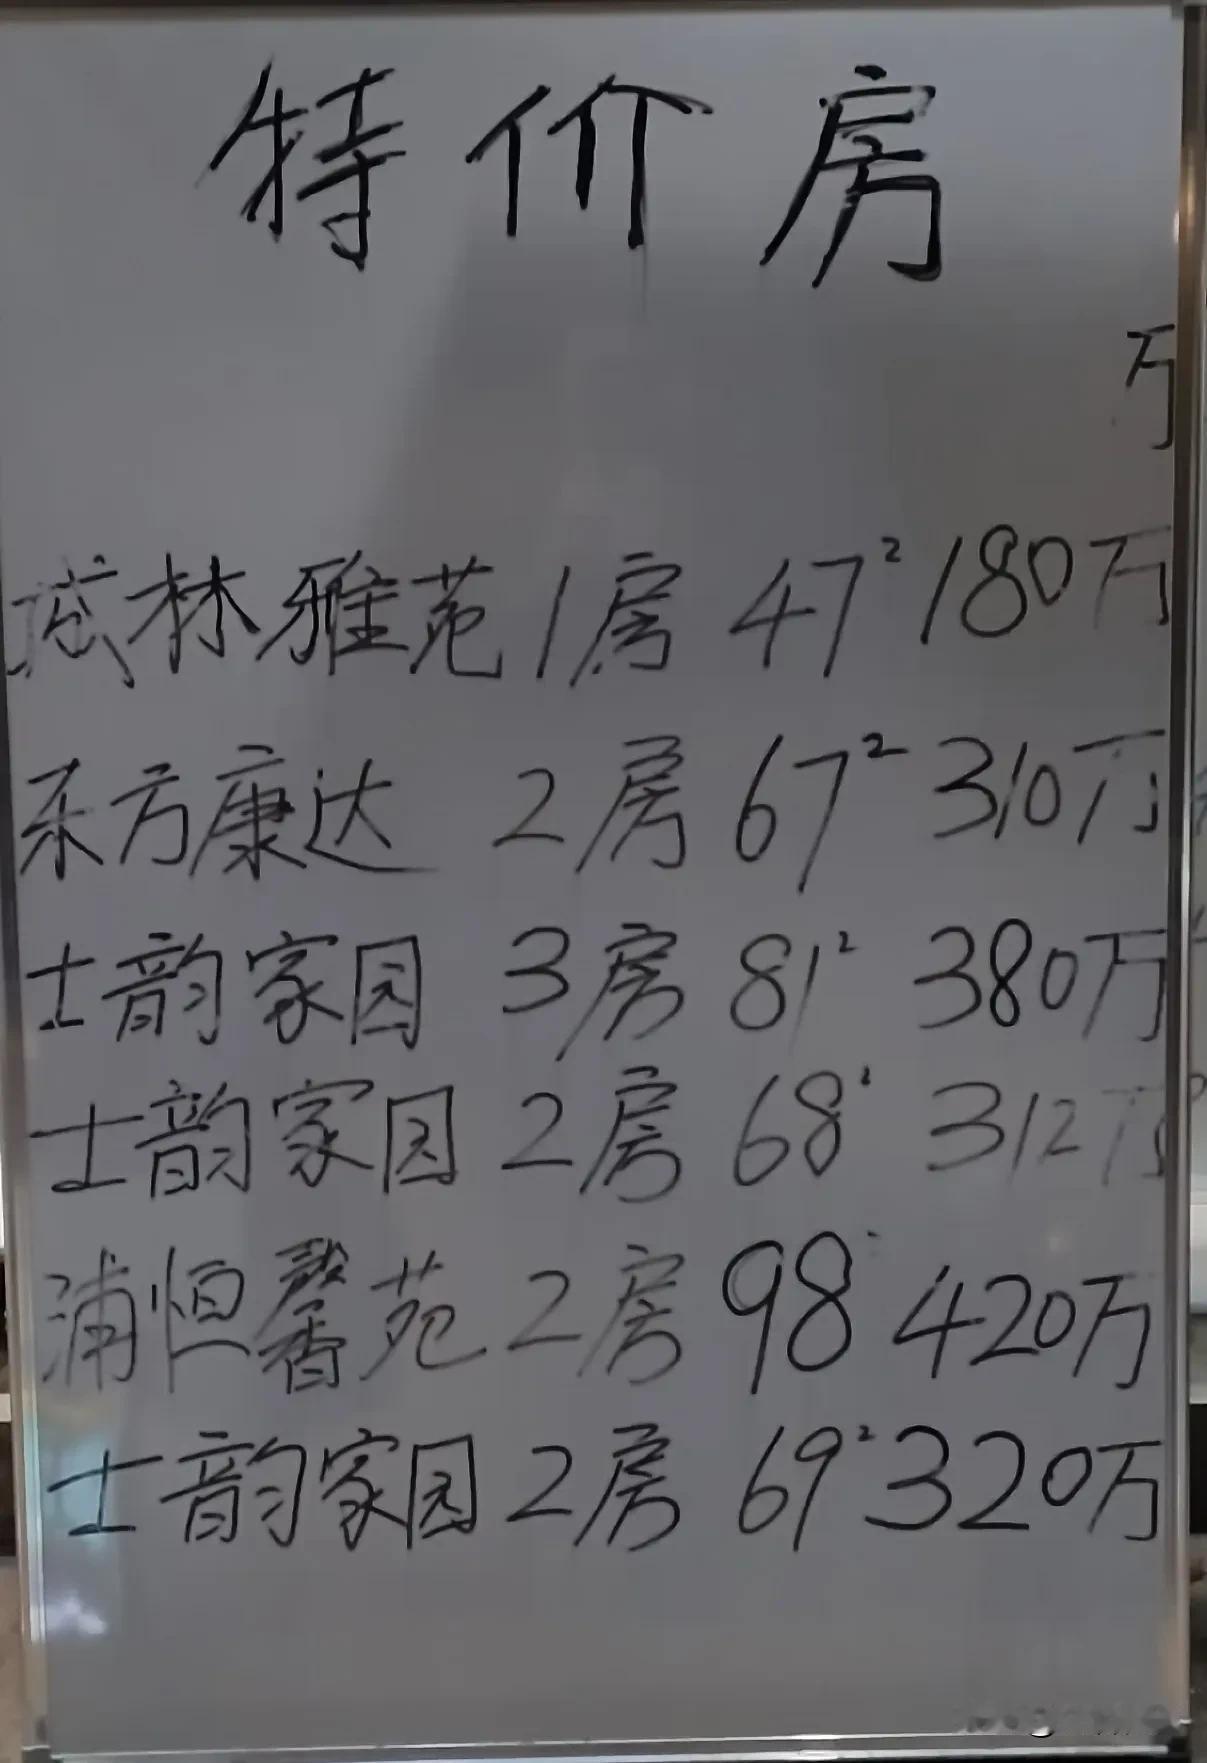 特价房
万
成林雅苑 1房 47² 180万
东方康达 2房 67² 310万
士韵家园 3房 81² 380万
士韵家园 2房 68² 312万
浦恒馨苑 2房 98 420万
士韵家园 2房 69² 320万